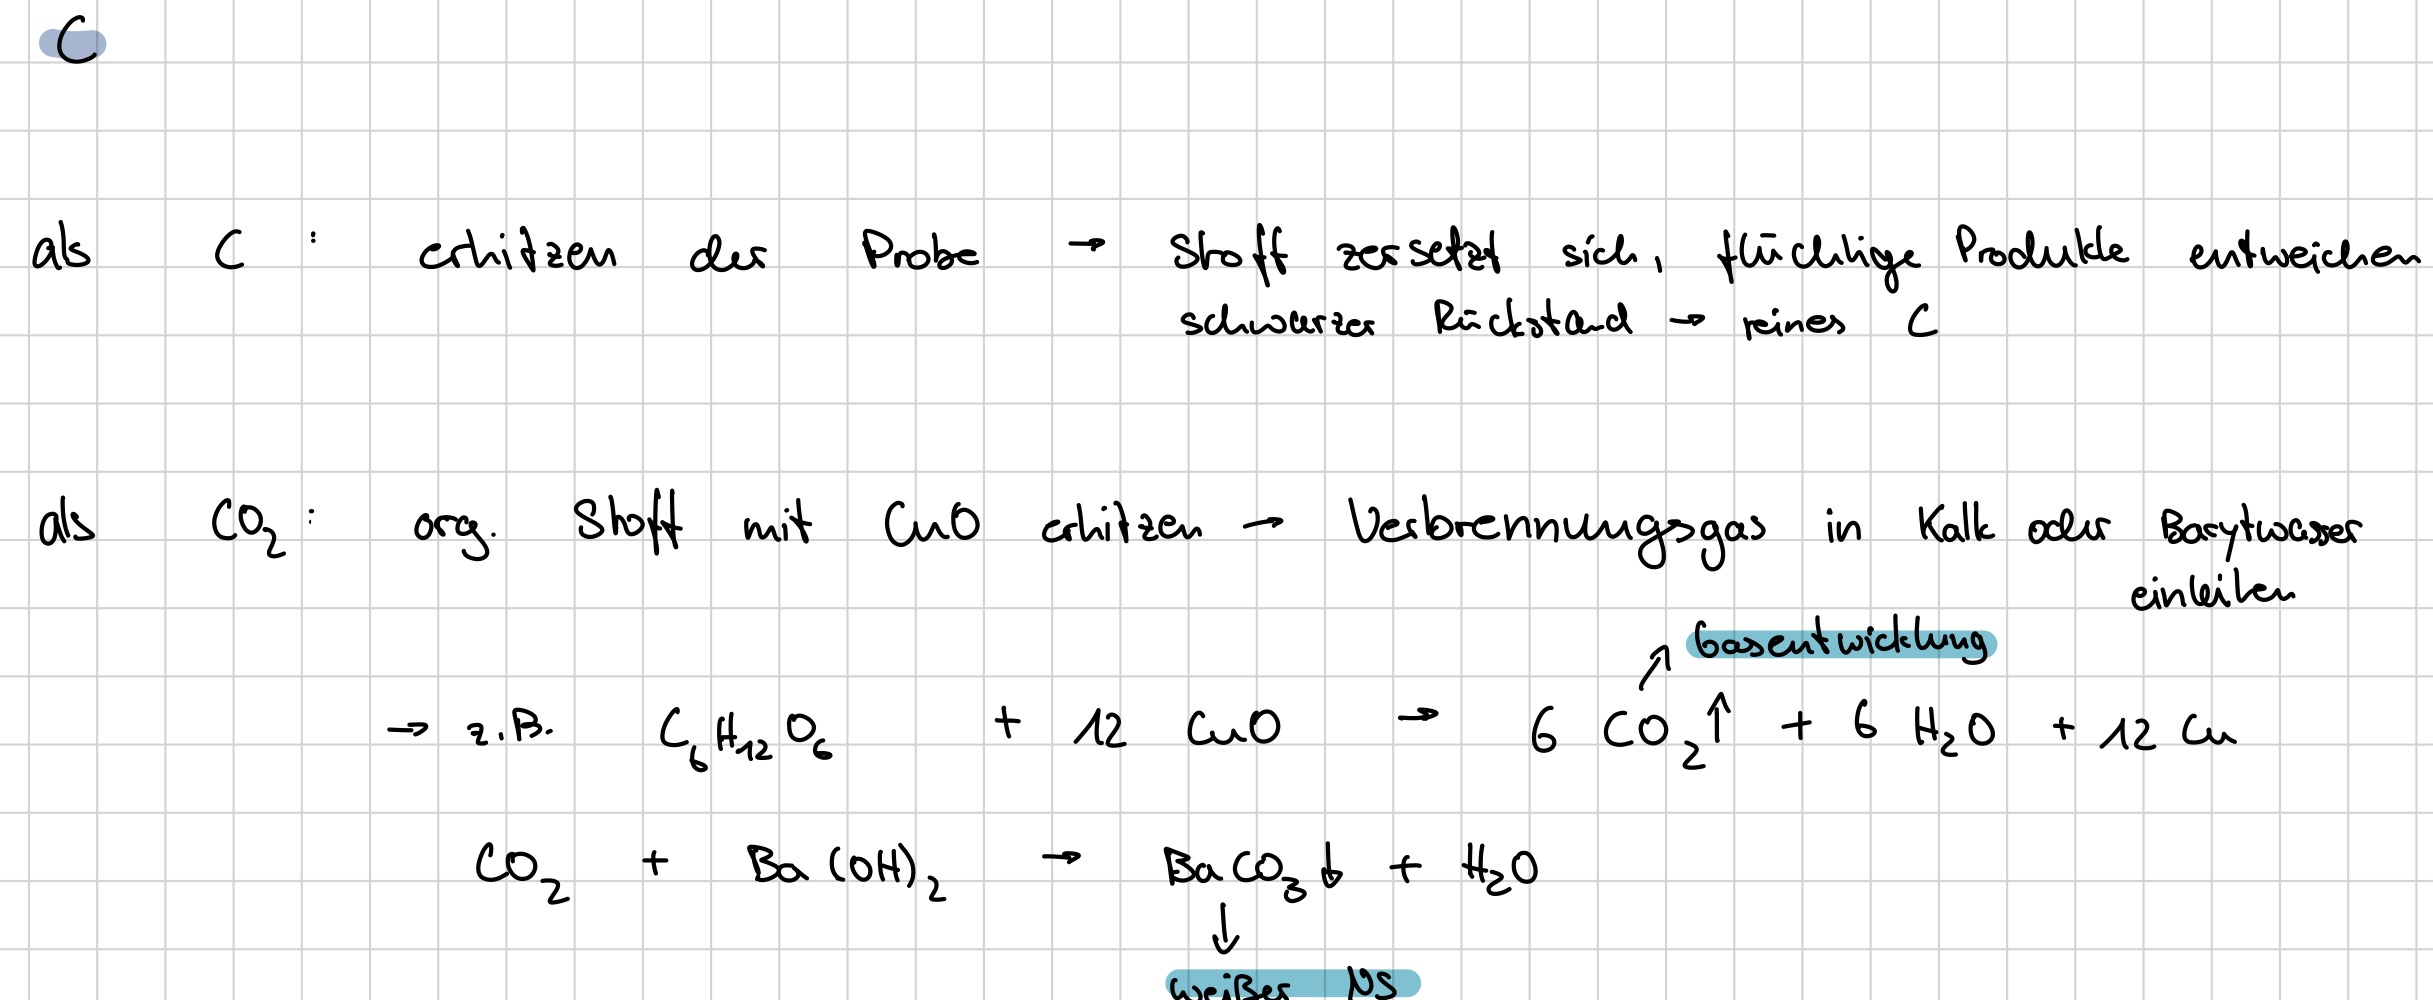 C
als C : erhitzen der Probe → Stoff zersetzt sich, flüchtige Produkte entweichen
schwarzer Rückstand → reines C
als CO₂ : org. Stoff mit CuO erhitzen → Verbrennungsgas in Kalk oder Barytwasser
einleiten
Gasentwicklung
→ z.B. C₆H₁₂O₆ + 12 CuO → 6 CO₂↑ + 6 H₂O + 12 Cu
CO₂ + Ba(OH)₂ → BaCO₃↓ + H₂O
weißer NS